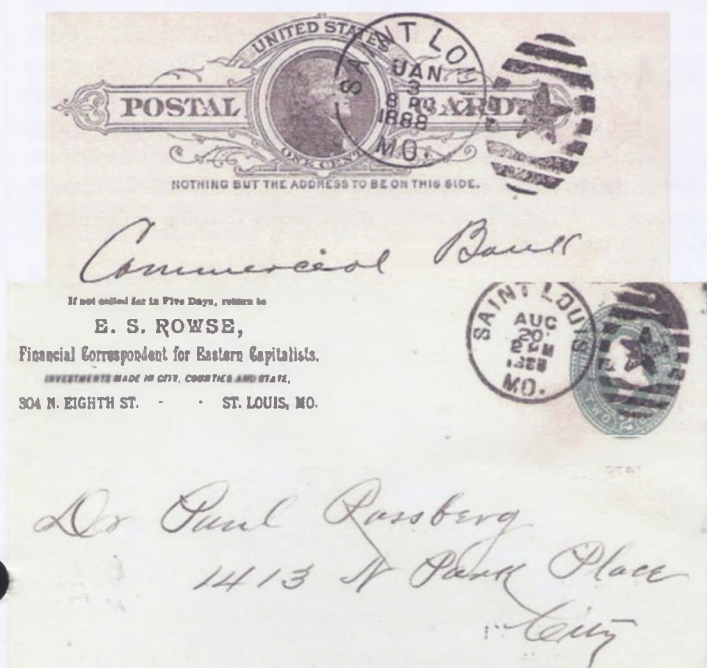 UNITED STATES
POSTAL CARD
ONE CENT
SAINT LOU
JAN
3
8 PM
1888
MO.
NOTHING BUT THE ADDRESS TO BE ON THIS SIDE.
Commercial Bank
If not called for in Five Days, return to
E. S. ROWSE,
Financial Correspondent for Eastern Capitalists.
INVESTMENTS MADE IN CITY, COUNTIES AND STATE,
304 N. EIGHTH ST. - - ST. LOUIS, MO.
SAINT LOUIS
AUC
20
2 PM
1888
MO.
TWO
Dr Paul Rossberg
1413 N Park Place
City